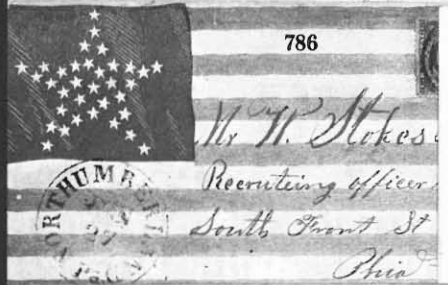 786
Mr W. Stokes
Recruteing officer
South Front St
Phia
NORTHUMBERLAND